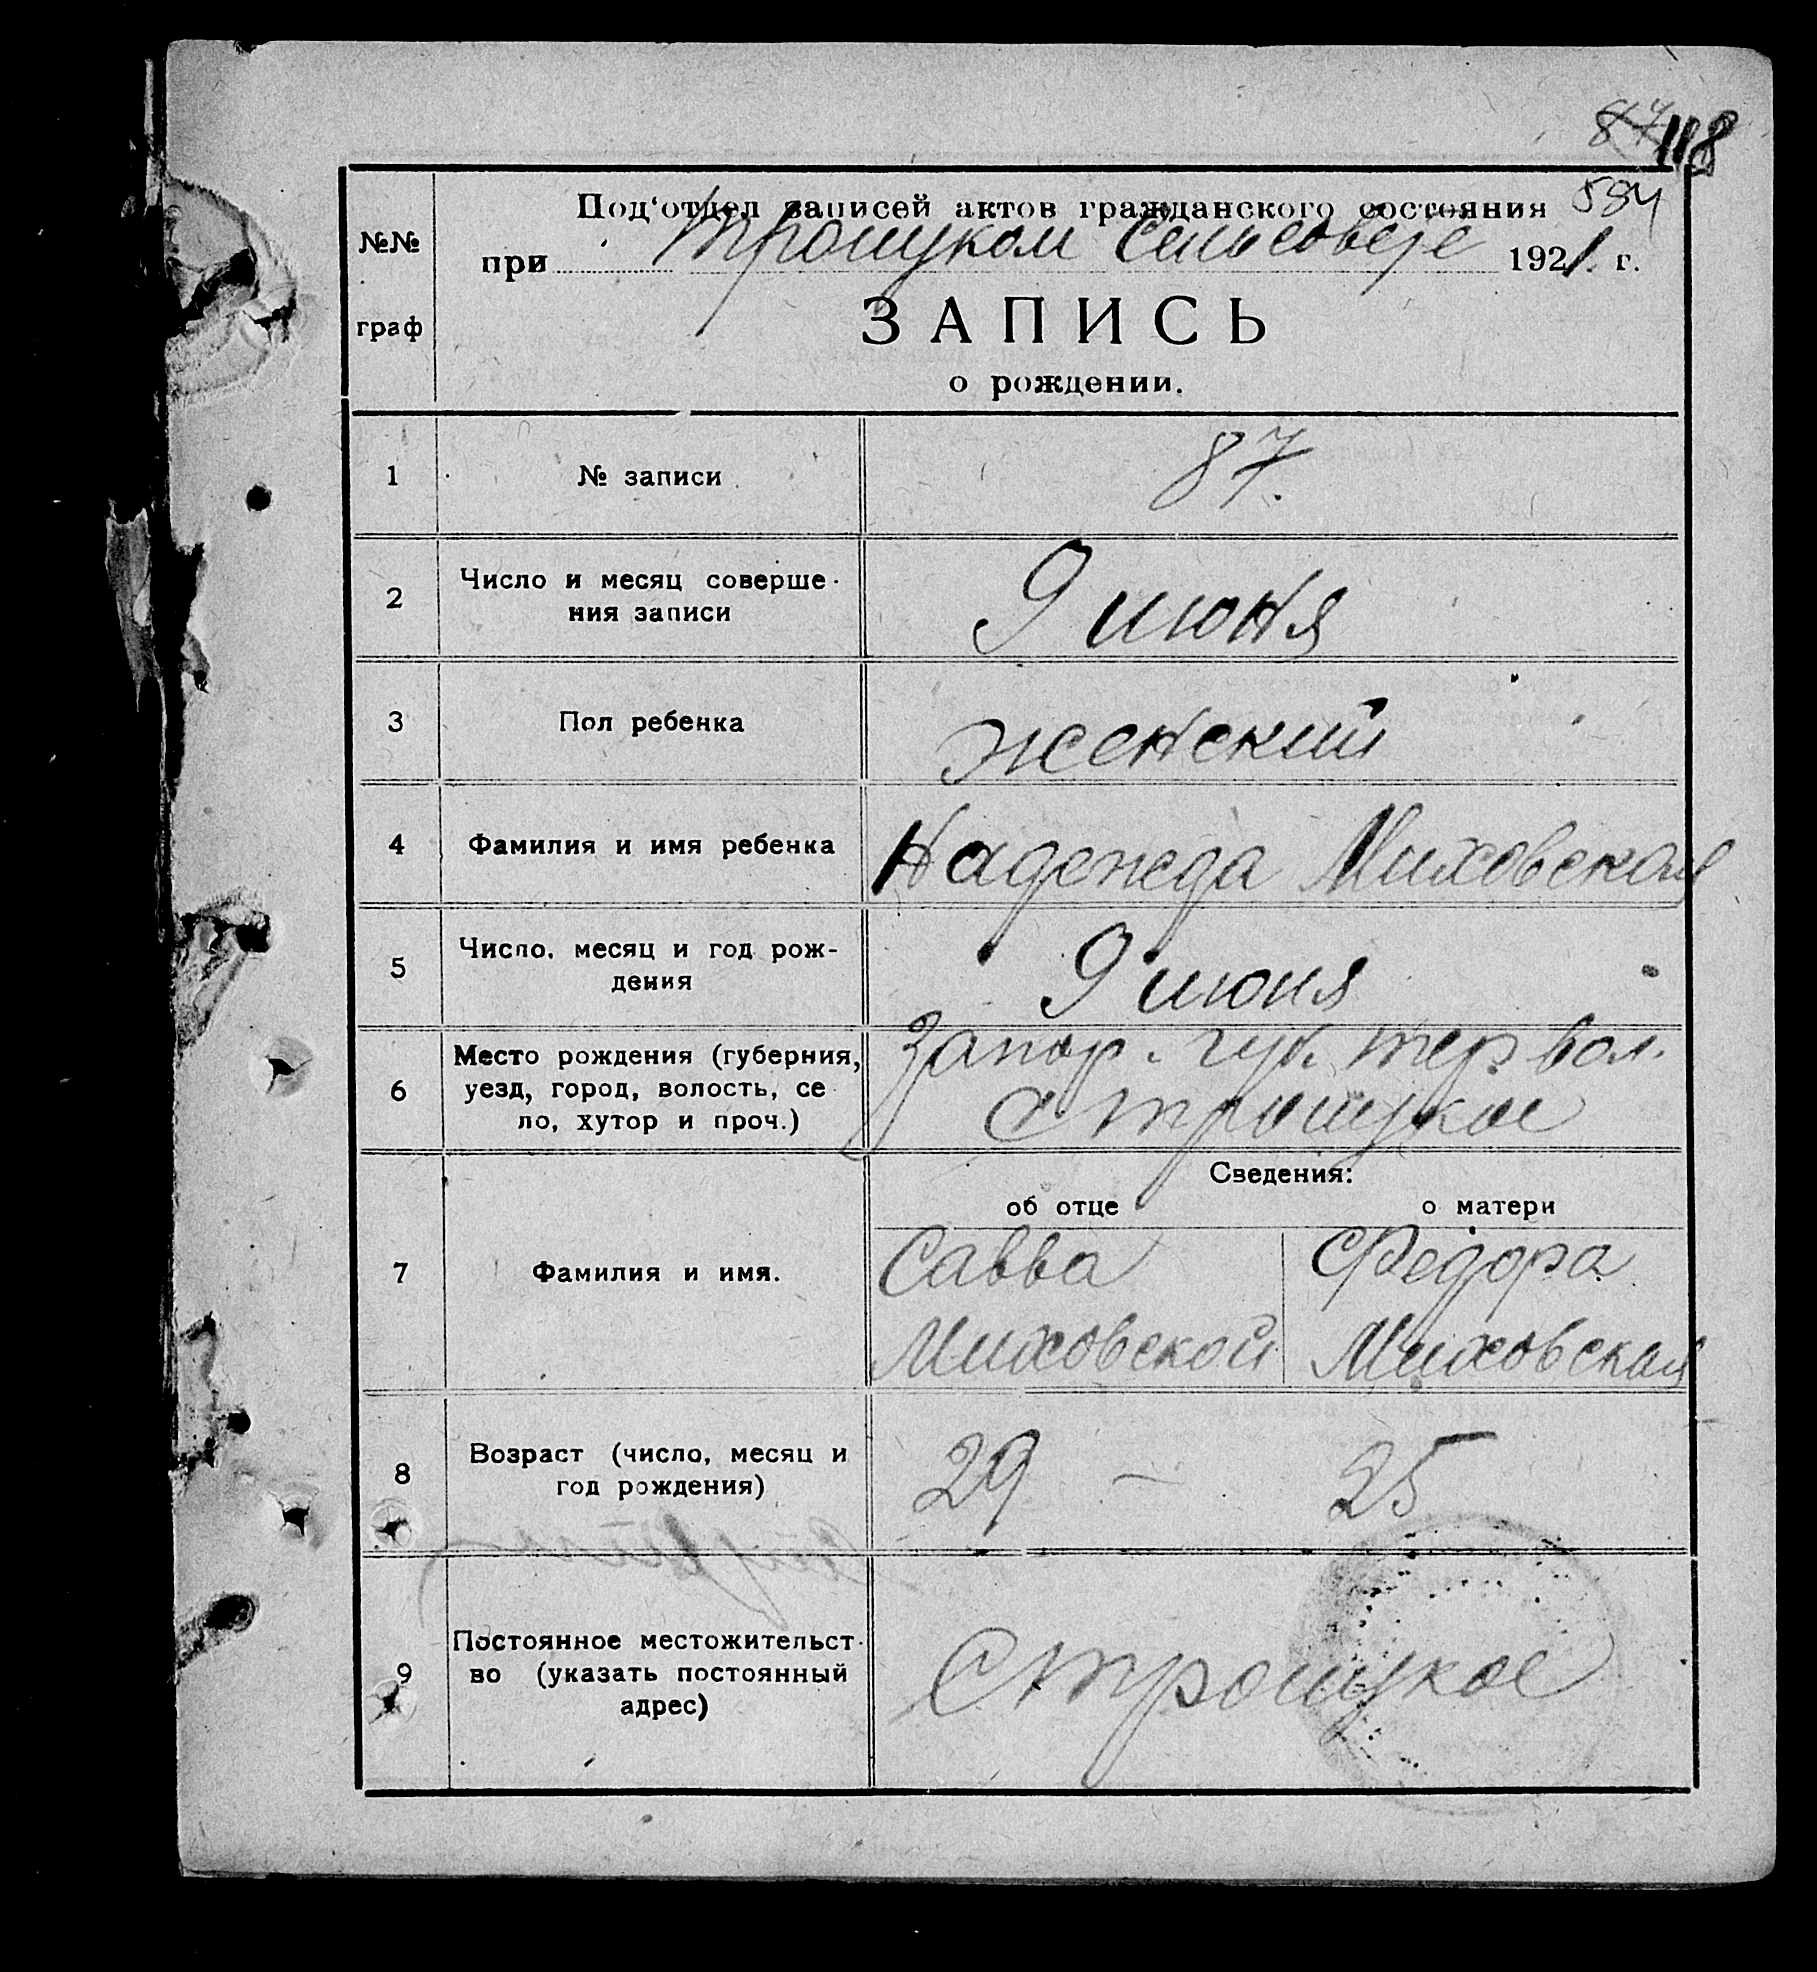 87 118
584
Под‘отдел записей актов гражданского состояния
№№
при Троицком Сельсовете 1921 г.
граф
ЗАПИСЬ
о рождении.
1 № записи 87.
2 Число и месяц соверше-
ния записи
9 июня
3 Пол ребенка женский
4 Фамилия и имя ребенка Надежда Миховская
5 Число, месяц и год рож-
дения
9 июня
6 Место рождения (губерния,
уезд, город, волость, се
ло, хутор и проч.)
Запор. губ. тер вол.
с Троицкое
Сведения:
об отце о матери
7 Фамилия и имя.
Савва Федора
Миховской Миховская
8 Возраст (число, месяц и
год рождения)
29 — 25
9 Постоянное местожительст-
во (указать постоянный
адрес)
С Троицкое